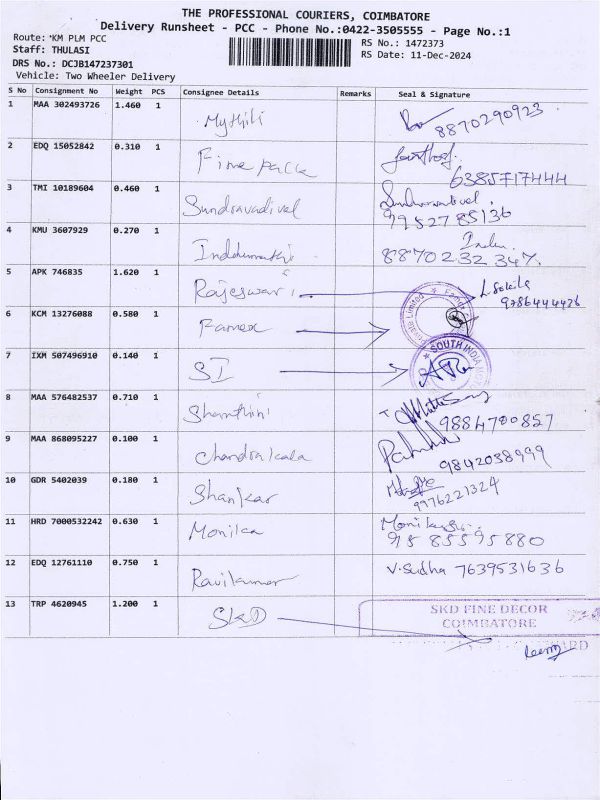 THE PROFESSIONAL COURIERS, COIMBATORE
Delivery Runsheet - PCC - Phone No.:0422-3505555 - Page No.:1
Route: KM PLM PCC
RS No.: 1472373
Staff: THULASI
RS Date: 11-Dec-2024
DRS No.: DCJB147237301
Vehicle: Two Wheeler Delivery
S No Consignment No Weight PCS Consignee Details Remarks Seal & Signature
1 MAA 302493726 1.460 1 Mythili 8870290923
2 EDQ 15052842 0.310 1 6385717444
3 TMI 10189604 0.460 1 Sundravadivel 9952785136
4 KMU 3607929 0.270 1 Indhumathi Indhu 8870232347
5 APK 746835 1.620 1 Rajeswari 9786444426
6 KCM 13276088 0.580 1 Famex
7 IXM 507496910 0.140 1 SI SOUTH INDIA
8 MAA 576482537 0.710 1 Shanthini 9884700857
9 MAA 868095227 0.100 1 Chandrakala 9842038999
10 GDR 5402039 0.180 1 Shankar 9976221324
11 HRD 7000532242 0.630 1 Monika 9585595880
12 EDQ 12761110 0.750 1 Ravikumar V. Sudha 7639531636
13 TRP 4620945 1.200 1 SKD SKD FINE DECOR
COIMBATORE